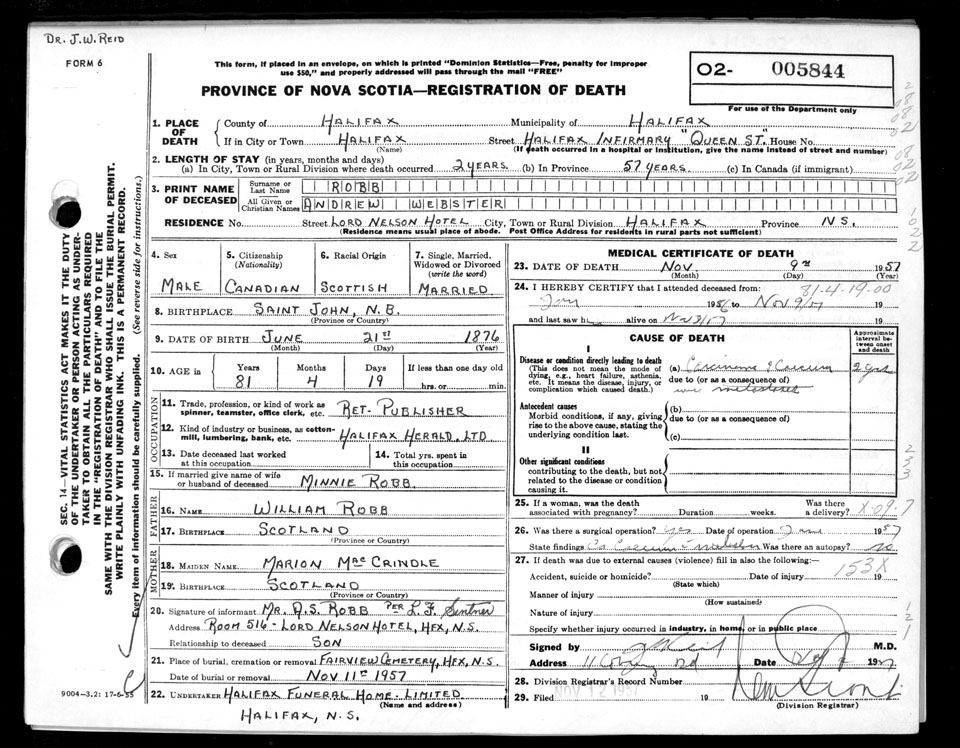 DR. J.W. REID
FORM 6
This form, if placed in an envelope, on which is printed "Dominion Statistics—Free, penalty for improper
use $50," and properly addressed will pass through the mail "FREE"
02- 005844
For use of the Department only
PROVINCE OF NOVA SCOTIA—REGISTRATION OF DEATH
1. PLACE OF DEATH
County of HALIFAX Municipality of HALIFAX
If in City or Town HALIFAX Street HALIFAX INFIRMARY "QUEEN ST." House No.
(Name) (If death occurred in a hospital or institution, give the name instead of street and number)
2. LENGTH OF STAY (in years, months and days)
(a) In City, Town or Rural Division where death occurred 2 YEARS. (b) In Province 57 YEARS. (c) In Canada (if immigrant)
3. PRINT NAME OF DECEASED
Surname or Last Name ROBB
All Given or Christian Names ANDREW WEBSTER
RESIDENCE No. Street LORD NELSON HOTEL City, Town or Rural Division HALIFAX Province N.S.
(Residence means usual place of abode. Post Office Address for residents in rural parts not sufficient)
4. Sex MALE
5. Citizenship (Nationality) CANADIAN
6. Racial Origin SCOTTISH
7. Single, Married, Widowed or Divorced (write the word) MARRIED
8. BIRTHPLACE SAINT JOHN, N.B.
(Province or Country)
9. DATE OF BIRTH JUNE 21st 1876
(Month) (Day) (Year)
10. AGE in Years 81 Months 4 Days 19 If less than one day old hrs. or min.
OCCUPATION
11. Trade, profession, or kind of work as spinner, teamster, office clerk, etc. RET- PUBLISHER
12. Kind of industry or business, as cotton-mill, lumbering, bank, etc. HALIFAX HERALD. LTD
13. Date deceased last worked at this occupation
14. Total yrs. spent in this occupation
15. If married give name of wife or husband of deceased MINNIE ROBB
FATHER
16. NAME WILLIAM ROBB
17. BIRTHPLACE SCOTLAND
(Province or Country)
MOTHER
18. MAIDEN NAME MARION MacCRINDLE
19. BIRTHPLACE SCOTLAND
(Province or Country)
20. Signature of informant MR. A.S. ROBB PER L. F.
Address ROOM 516- LORD NELSON HOTEL, HFX, N.S.
Relationship to deceased SON
21. Place of burial, cremation or removal FAIRVIEW CEMETERY, HFX, N.S.
Date of burial or removal NOV 11th 1957
22. UNDERTAKER HALIFAX FUNERAL HOME- LIMITED.
(Name and address)
HALIFAX, N.S.
9004—3.2: 17-6-55
MEDICAL CERTIFICATE OF DEATH
23. DATE OF DEATH Nov. 9th 1957
(Month) (Day) (Year)
24. I HEREBY CERTIFY that I attended deceased from: 81-4-19-00
195 to Nov 9/57 19
and last saw h alive on 19
CAUSE OF DEATH
Approximate interval between onset and death
I
Disease or condition directly leading to death
(This does not mean the mode of dying, e.g., heart failure, asthenia, etc. It means the disease, injury, or complication which caused death.)
(a) Carcinoma of Caecum 2 yrs
due to (or as a consequence of)
Antecedent causes
Morbid conditions, if any, giving rise to the above cause, stating the underlying condition last.
(b)
due to (or as a consequence of)
(c)
II
Other significant conditions
contributing to the death, but not related to the disease or condition causing it.
25. If a woman, was the death associated with pregnancy? Duration weeks. Was there a delivery? X-09-7
26. Was there a surgical operation? yes Date of operation 1957
State findings Ca Caecum Was there an autopsy? no
27. If death was due to external causes (violence) fill in also the following:— 153X
Accident, suicide or homicide? Date of injury 19
(State which)
Manner of injury
(How sustained)
Nature of injury
Specify whether injury occurred in industry, in home, or in public place
Signed by M.D.
Address Date 19
28. Division Registrar's Record Number
29. Filed NOV 12 1957 19
(Division Registrar)
SEC. 14—VITAL STATISTICS ACT MAKES IT THE DUTY
OF THE UNDERTAKER OR PERSON ACTING AS UNDER-
TAKER TO OBTAIN ALL THE PARTICULARS REQUIRED
IN THE "REGISTRATION OF DEATH" AND TO FILE THE
SAME WITH THE DIVISION REGISTRAR WHO SHALL ISSUE THE BURIAL PERMIT.
WRITE PLAINLY WITH UNFADING INK. THIS IS A PERMANENT RECORD.
Every item of information should be carefully supplied. (See reverse side for instructions.)